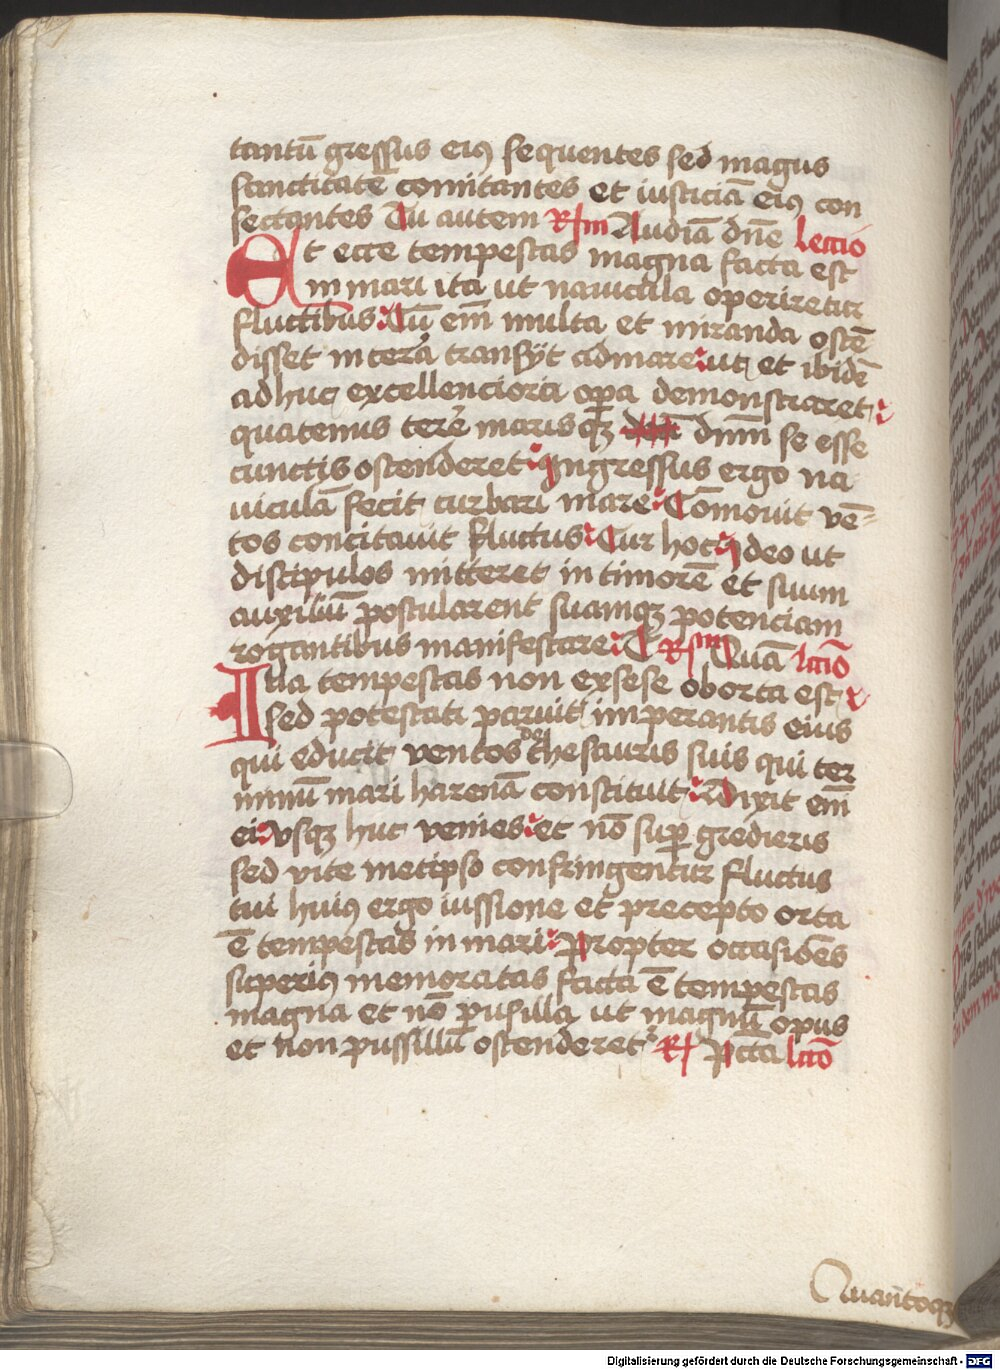 tantū gressus eiꝰ sequentes sed magus
sanctitatē comitantes et iusticiā eiꝰ con
sectantes Tu autem Rm Audiā dne Leccio
Et ecce tempestas magna facta est
in mari ita ut nauicula operiretur
fluctibus: Cū em multa et miranda ostē
disset in tera transyt ad mare: ut et ibidē
adhuc excellenciora opa demonstraret:
quatenus tere marisqꝫ dnm se esse
cunctis ostenderet: Ingressus ergo na
uiculā fecit turbari mare: Cōmouit vē=
tos concitauit fluctus: Cur hoc deo ut
discipulos mitteret in timorē et suum
auxiliū postularent suamqꝫ potenciam
rogantibus manifestare: T Rm Quā lccio
Illa tempestas non exsese oborta est
sed potestati paruit imperantis eius
qui educit ventos de thesauris suis qui ter
minū mari harenā constituit: Dixit em
ei: vsqꝫ huc venies: et nō supgredieris
sed vite metipso confringentur fluctus
tui huiꝰ ergo iussione et precepto orta
ē tempestas in mari: Propter occasiōes
superiꝰ memoratas facta ē tempestas
magna et nō pusilla ut magnū opus
et non pussillū ostenderet R Pcca lccō
Quantoqꝫ
Digitalisierung gefördert durch die Deutsche Forschungsgemeinschaft - DFG